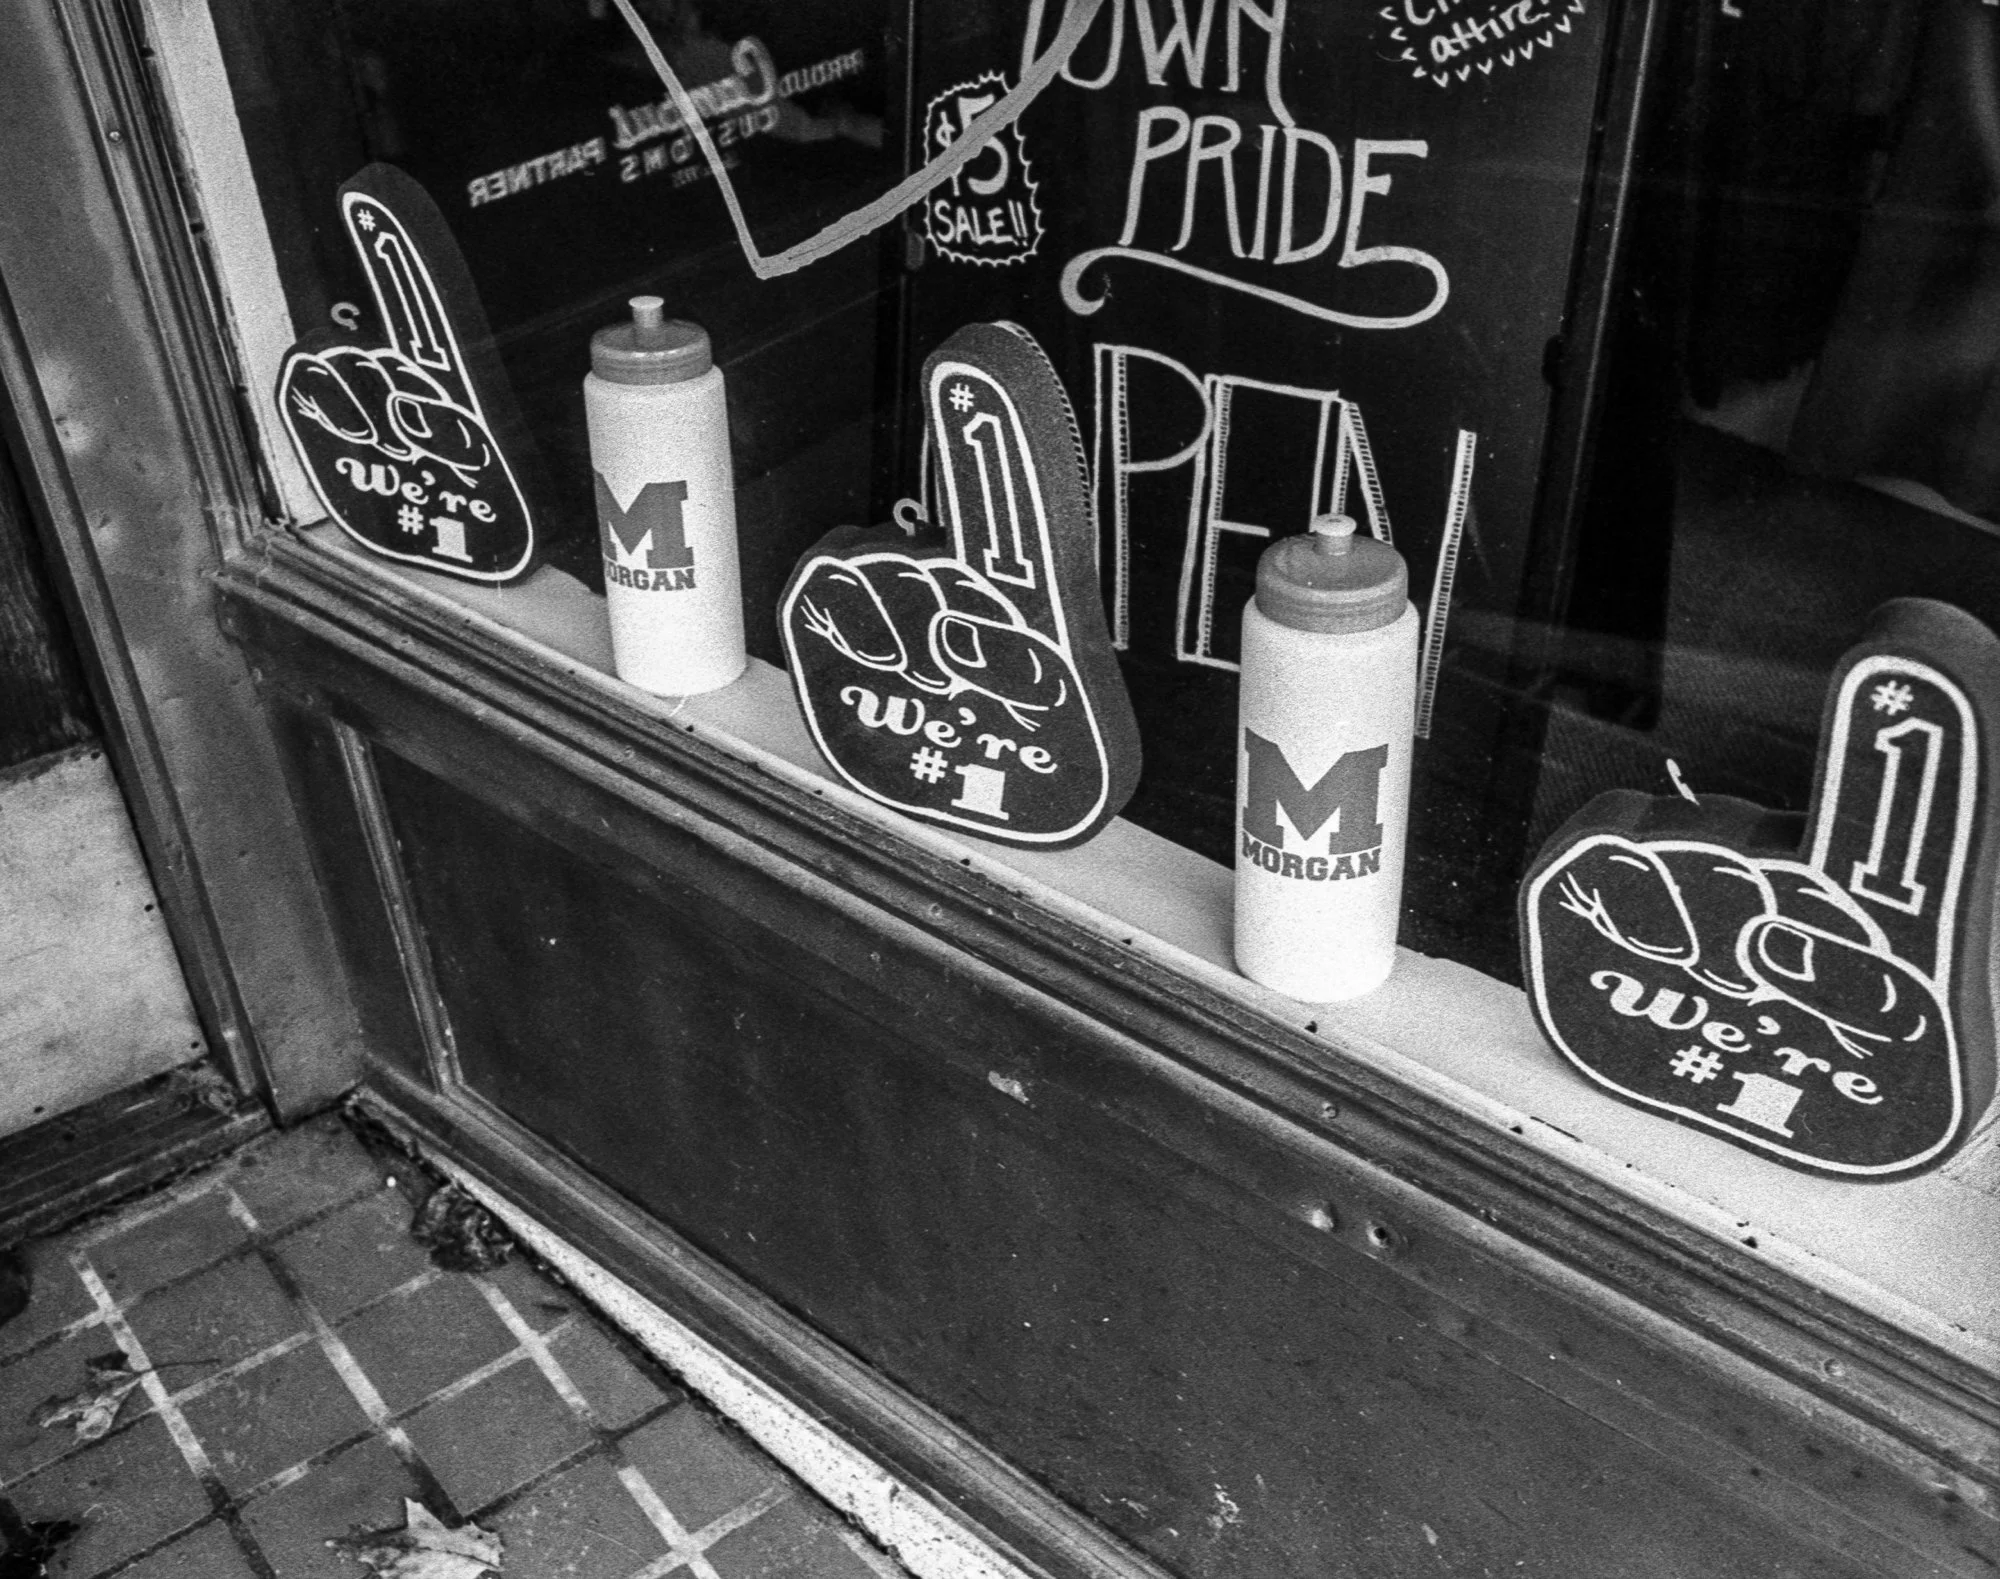 attire!
TOWN
PRIDE
$5
SALE!!
PROUD
CUSTOMS
PARTNER
OPEN
#1
We're
#1
M
MORGAN
#1
We're
#1
M
MORGAN
#1
We're
#1